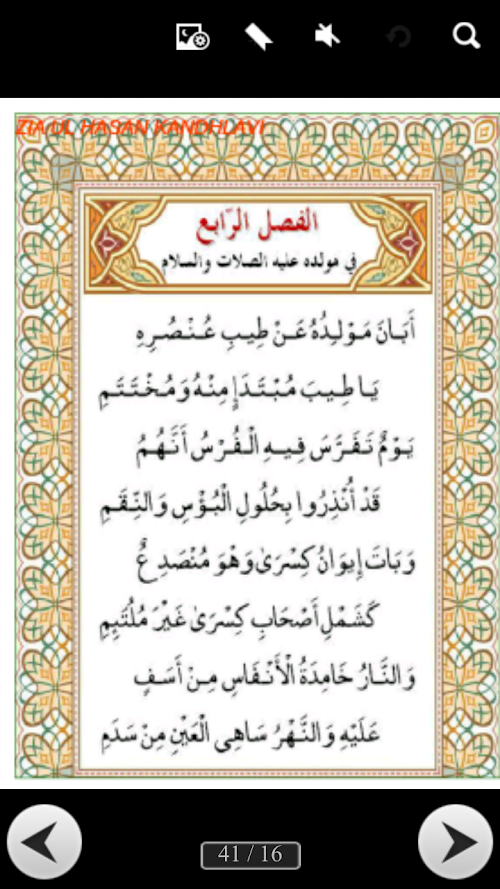 ZIA UL HASAN KANDHLAVI
الفصل الرّابع
في مولده عليه الصلات والسلام
أَبَانَ مَوْلِدُهُ عَنْ طِيبِ عُنْصُرِهِ
يَا طِيبَ مُبْتَدَإٍ مِنْهُ وَمُخْتَتَمِ
يَوْمٌ تَفَرَّسَ فِيهِ الْفُرْسُ أَنَّهُمُ
قَدْ أُنْذِرُوا بِحُلُولِ الْبُؤْسِ وَالنِّقَمِ
وَبَاتَ إِيوَانُ كِسْرَىٰ وَهْوَ مُنْصَدِعٌ
كَشَمْلِ أَصْحَابِ كِسْرَىٰ غَيْرَ مُلْتَئِمِ
وَالنَّارُ خَامِدَةُ الْأَنْفَاسِ مِنْ أَسَفٍ
عَلَيْهِ وَالنَّهْرُ سَاهِي الْعَيْنِ مِنْ سَدَمِ
41 / 16